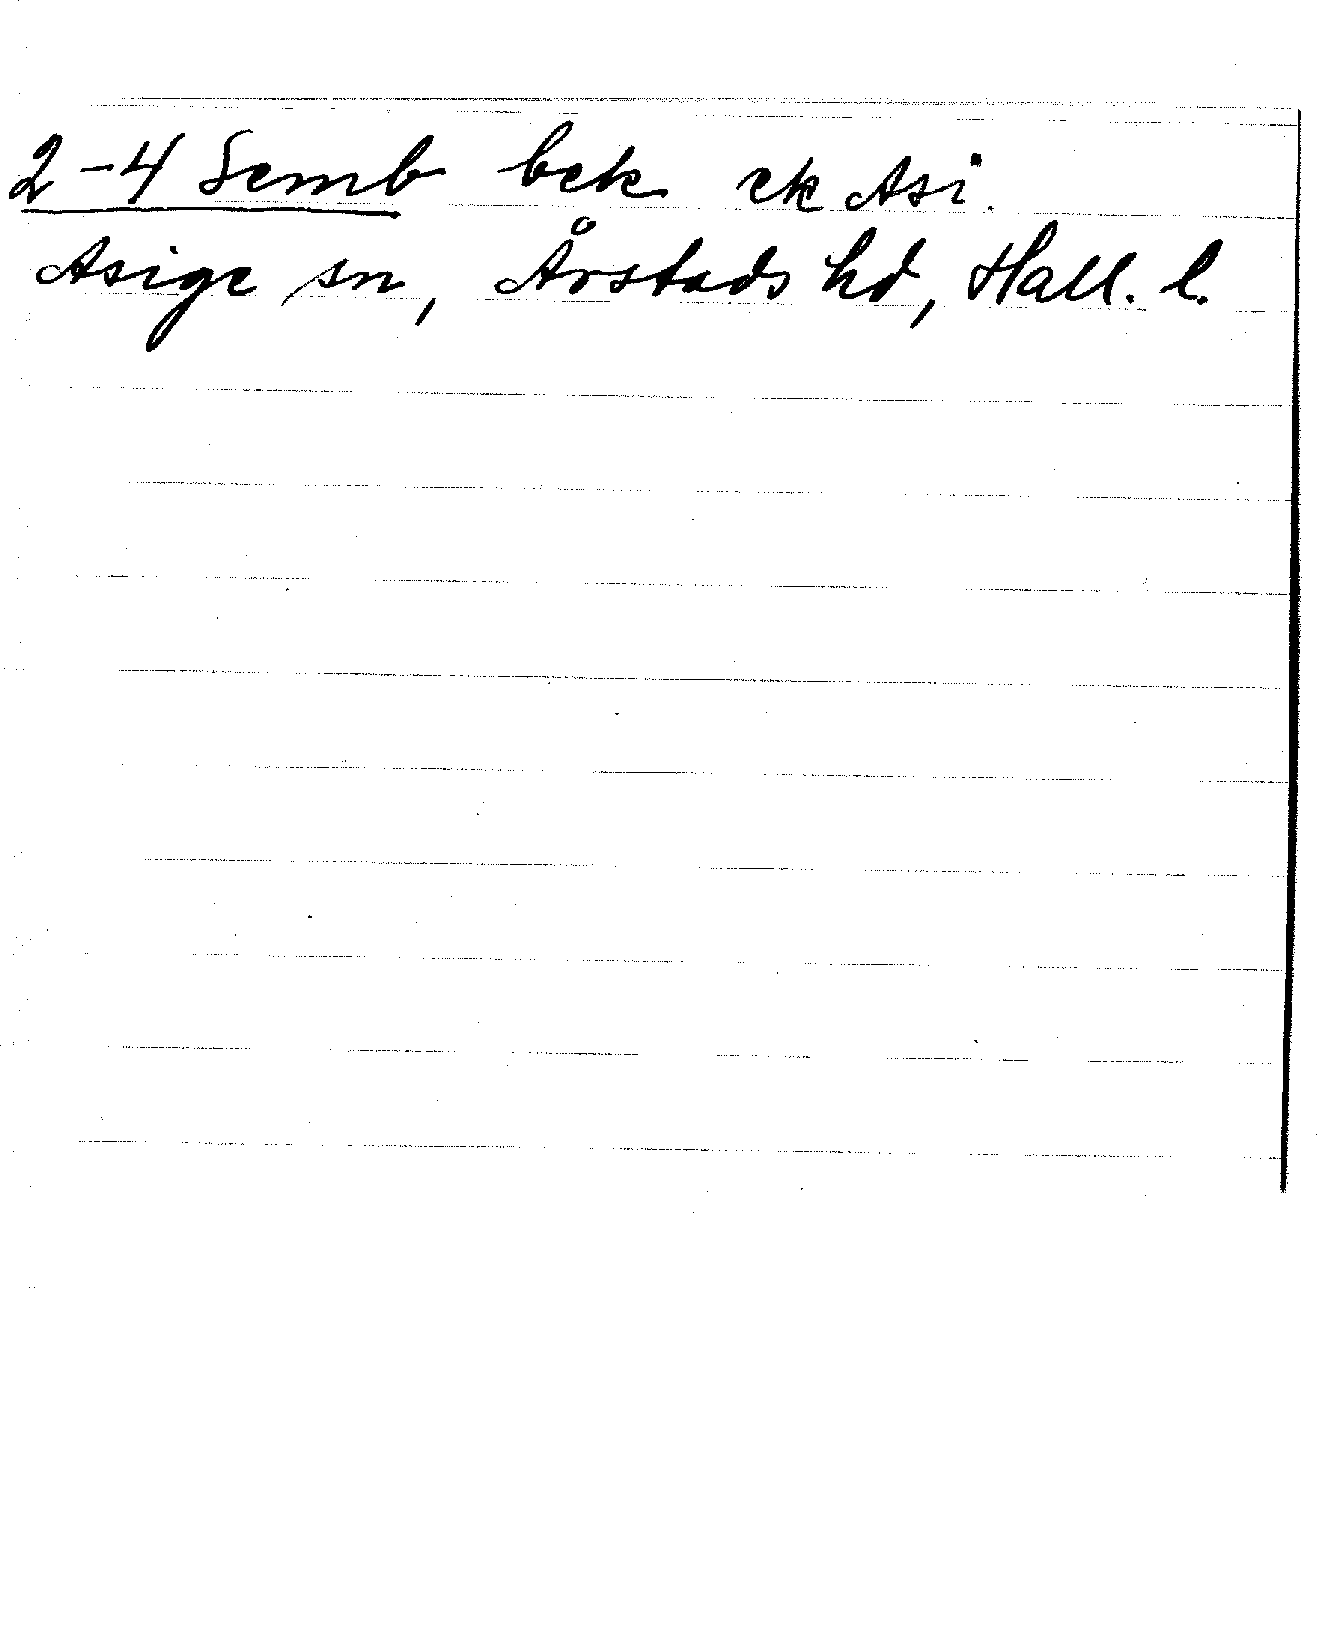 2-4 Semb bek ek Asi.
Asige sn, Årstads hd, Hall. l.